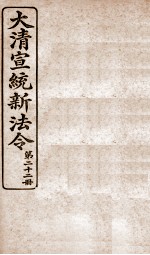 大清宣統新法令
第二十二冊